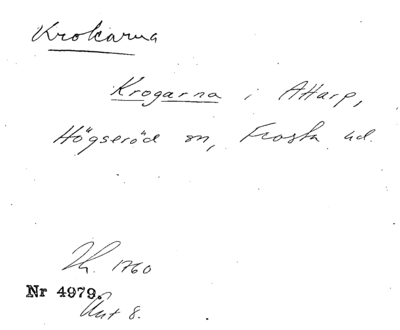 Krokarna
Krogarna i Attarp,
Högseröd sn, Frosta hd.
Lh. 1760
Nr 4979.
Akt 8.